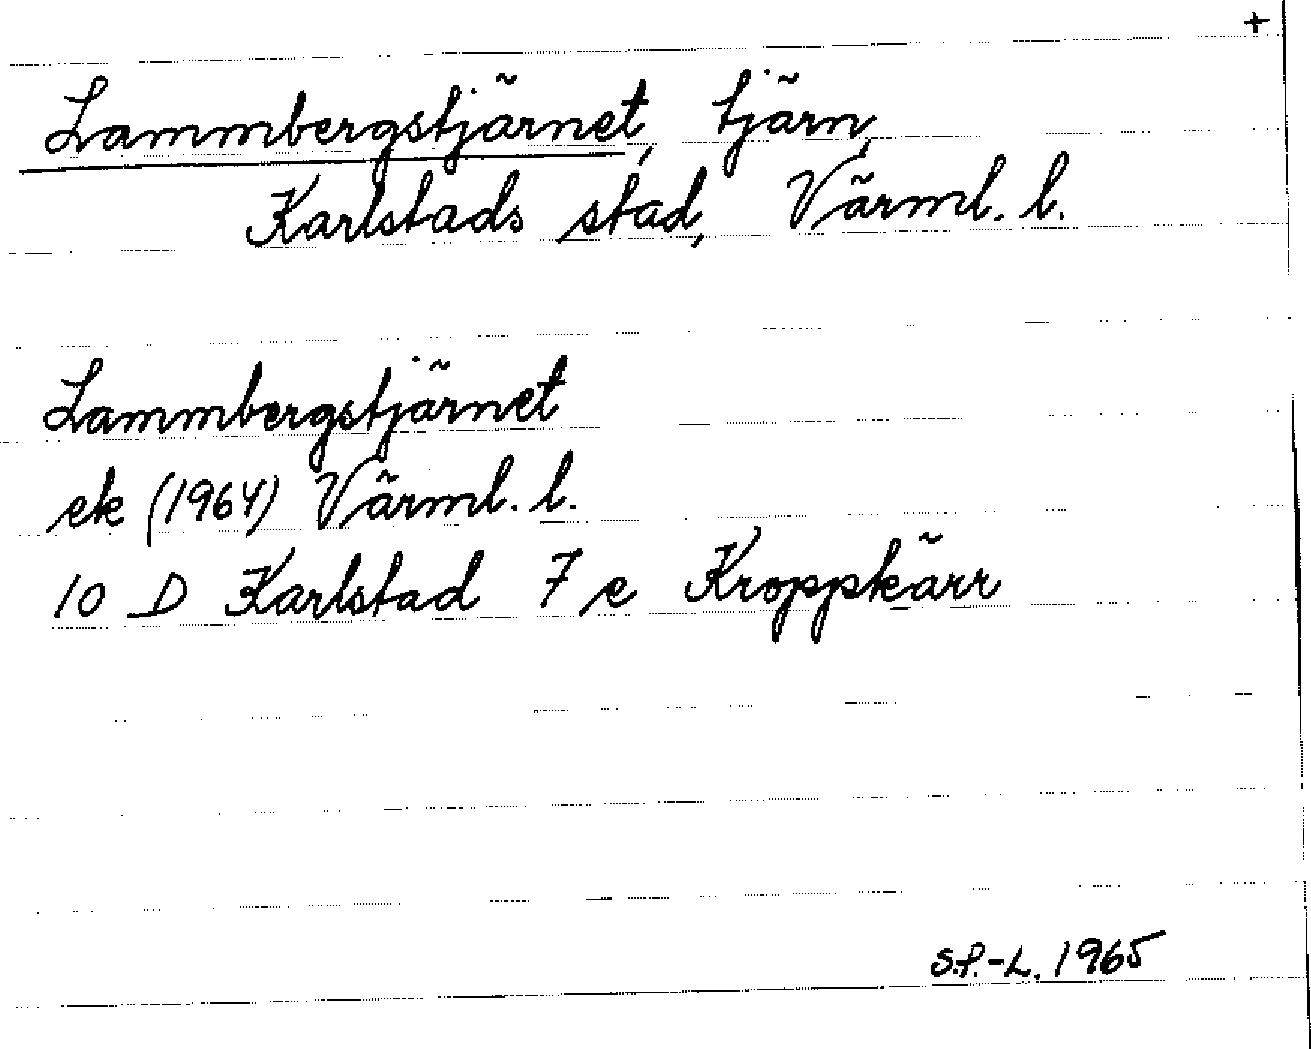 +
Lammbergstjärnet, tjärn,
Karlstads stad, Värml. l.
Lammbergstjärnet
ek (1964) Värml. l.
10 D Karlstad 7 e Kroppkärr
S.P.-L. 1965